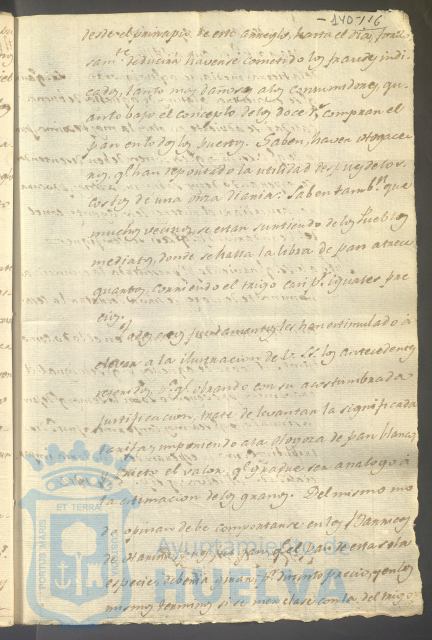 - 140 - 116
desde el principio de este arreglo, hasta el dia, precisamte
deducirá haverse cometido los fraudes indi
cados, tanto mas dañosos a los consumidores, qu
anto bajo el concepto de los doce rs compran el
pan en todos los puestos. Saben, haver otogace
nos, qe han reportado la utilidad despues de los
costos de una onza diaria: Saben tambn que
muchos vecinos se estan surtiendo de los Pueblos
mediatos, donde se halla la libra de pan a trece
quartos, corriendo el trigo casi pr iguales pre
cios.
Todos estos fundamentos les han estimulado á
elevar a la ilustracion de V. SS. los antecedentes
referidos, pa qe obrando con su acostumbrada
justificacion, trate de levantar la significada
tarifa, imponiendo a la Hogaza de pan blanco
puesto el valor, qe gradue ser analogo á
la estimacion de los granos. Del mismo mo
do opinan debe comprontarse en los
de Harina, pues pan qe el pan de esta sola
especie, deberia opinar pr distinto precio, y en los
mismos terminos si se mesclase con la del trigo
ET TERRA
PORTUS MARIS
CUSTODIA
Ayuntamiento de
HUELVA